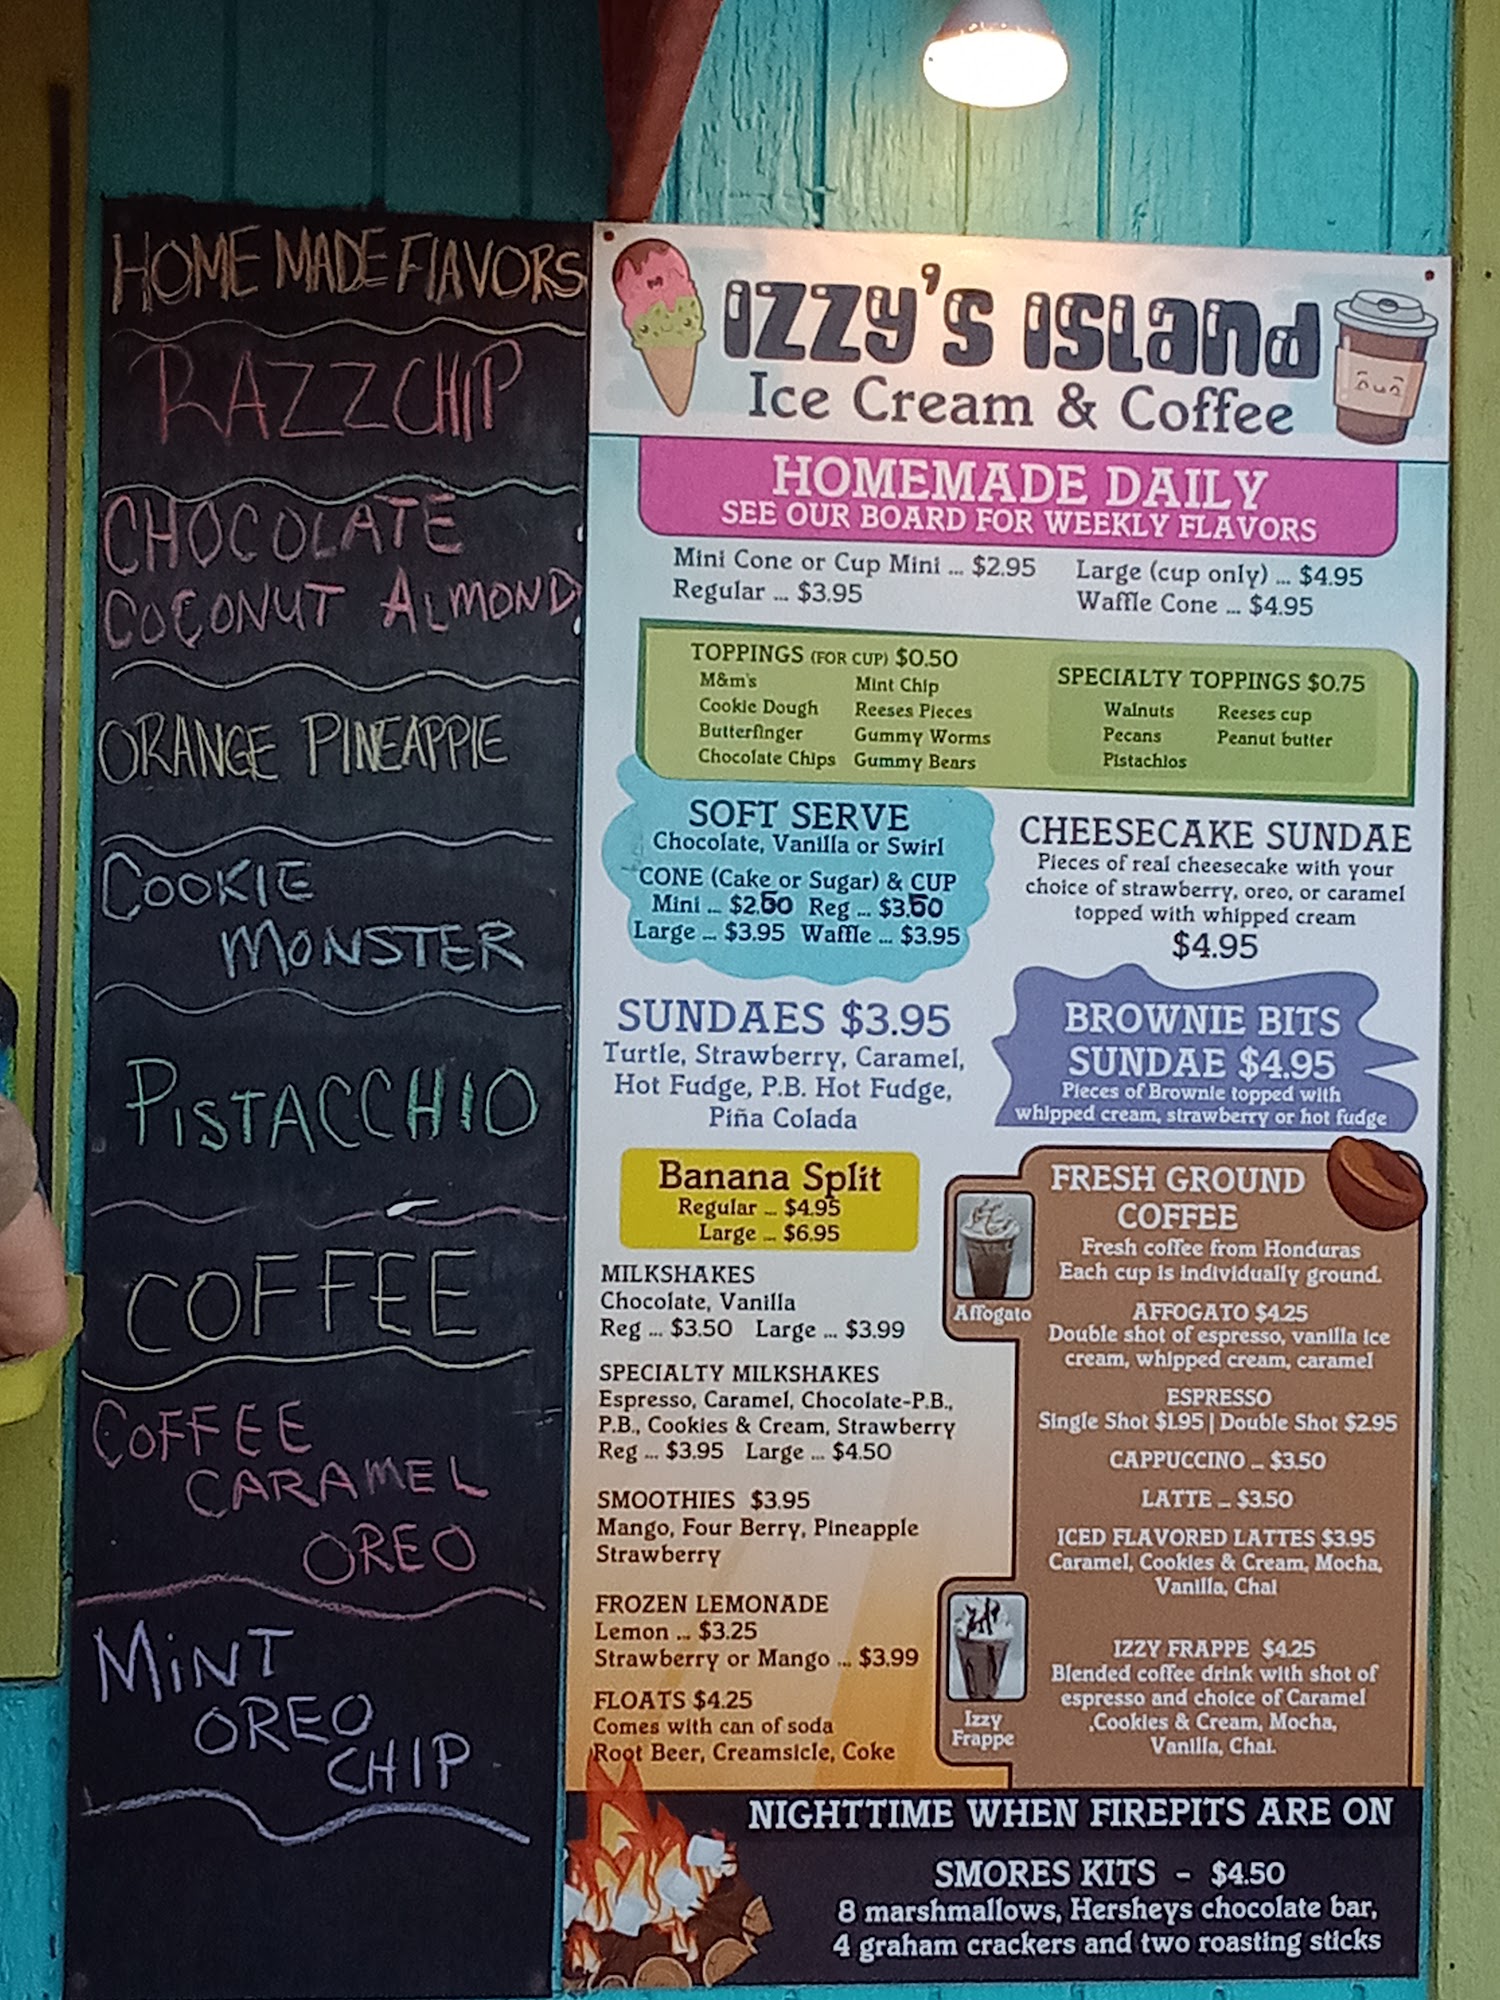 HOME MADE FLAVORS
RAZZCHIP
CHOCOLATE
COCONUT ALMOND
ORANGE PINEAPPLE
COOKIE
MONSTER
PISTACCHIO
COFFEE
COFFEE
CARAMEL
OREO
MINT
OREO
CHIP
Izzy's Island
Ice Cream & Coffee
HOMEMADE DAILY
SEE OUR BOARD FOR WEEKLY FLAVORS
Mini Cone or Cup Mini ... $2.95
Regular ... $3.95
Large (cup only) ... $4.95
Waffle Cone ... $4.95
TOPPINGS (FOR CUP) $0.50
M&m's Mint Chip
Cookie Dough Reeses Pieces
Butterfinger Gummy Worms
Chocolate Chips Gummy Bears
SPECIALTY TOPPINGS $0.75
Walnuts Reeses cup
Pecans Peanut butter
Pistachios
SOFT SERVE
Chocolate, Vanilla or Swirl
CONE (Cake or Sugar) & CUP
Mini ... $2.50 Reg ... $3.50
Large ... $3.95 Waffle ... $3.95
CHEESECAKE SUNDAE
Pieces of real cheesecake with your
choice of strawberry, oreo, or caramel
topped with whipped cream
$4.95
SUNDAES $3.95
Turtle, Strawberry, Caramel,
Hot Fudge, P.B. Hot Fudge,
Piña Colada
BROWNIE BITS
SUNDAE $4.95
Pieces of Brownie topped with
whipped cream, strawberry or hot fudge
Banana Split
Regular ... $4.95
Large ... $6.95
MILKSHAKES
Chocolate, Vanilla
Reg ... $3.50 Large ... $3.99
SPECIALTY MILKSHAKES
Espresso, Caramel, Chocolate-P.B.,
P.B., Cookies & Cream, Strawberry
Reg ... $3.95 Large ... $4.50
SMOOTHIES $3.95
Mango, Four Berry, Pineapple
Strawberry
FROZEN LEMONADE
Lemon ... $3.25
Strawberry or Mango ... $3.99
FLOATS $4.25
Comes with can of soda
Root Beer, Creamsicle, Coke
FRESH GROUND
COFFEE
Fresh coffee from Honduras
Each cup is individually ground.
Affogato
AFFOGATO $4.25
Double shot of espresso, vanilla ice
cream, whipped cream, caramel
ESPRESSO
Single Shot $1.95 | Double Shot $2.95
CAPPUCCINO ... $3.50
LATTE ... $3.50
ICED FLAVORED LATTES $3.95
Caramel, Cookies & Cream, Mocha,
Vanilla, Chai
Izzy
Frappe
IZZY FRAPPE $4.25
Blended coffee drink with shot of
espresso and choice of Caramel
,Cookies & Cream, Mocha,
Vanilla, Chai.
NIGHTTIME WHEN FIREPITS ARE ON
SMORES KITS - $4.50
8 marshmallows, Hersheys chocolate bar,
4 graham crackers and two roasting sticks